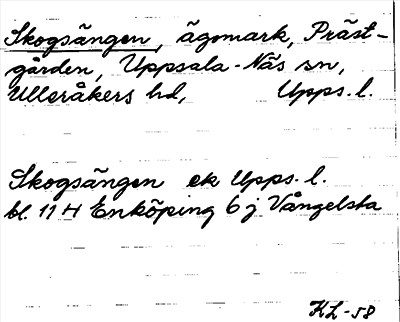 Skogsängen, ägomark, Präst-
gården, Uppsala-Näs sn,
Ulleråkers hd, Upps. l.
Skogsängen ek Upps. l.
bl. 114 Enköping 6 j Vångelsta
KL-58